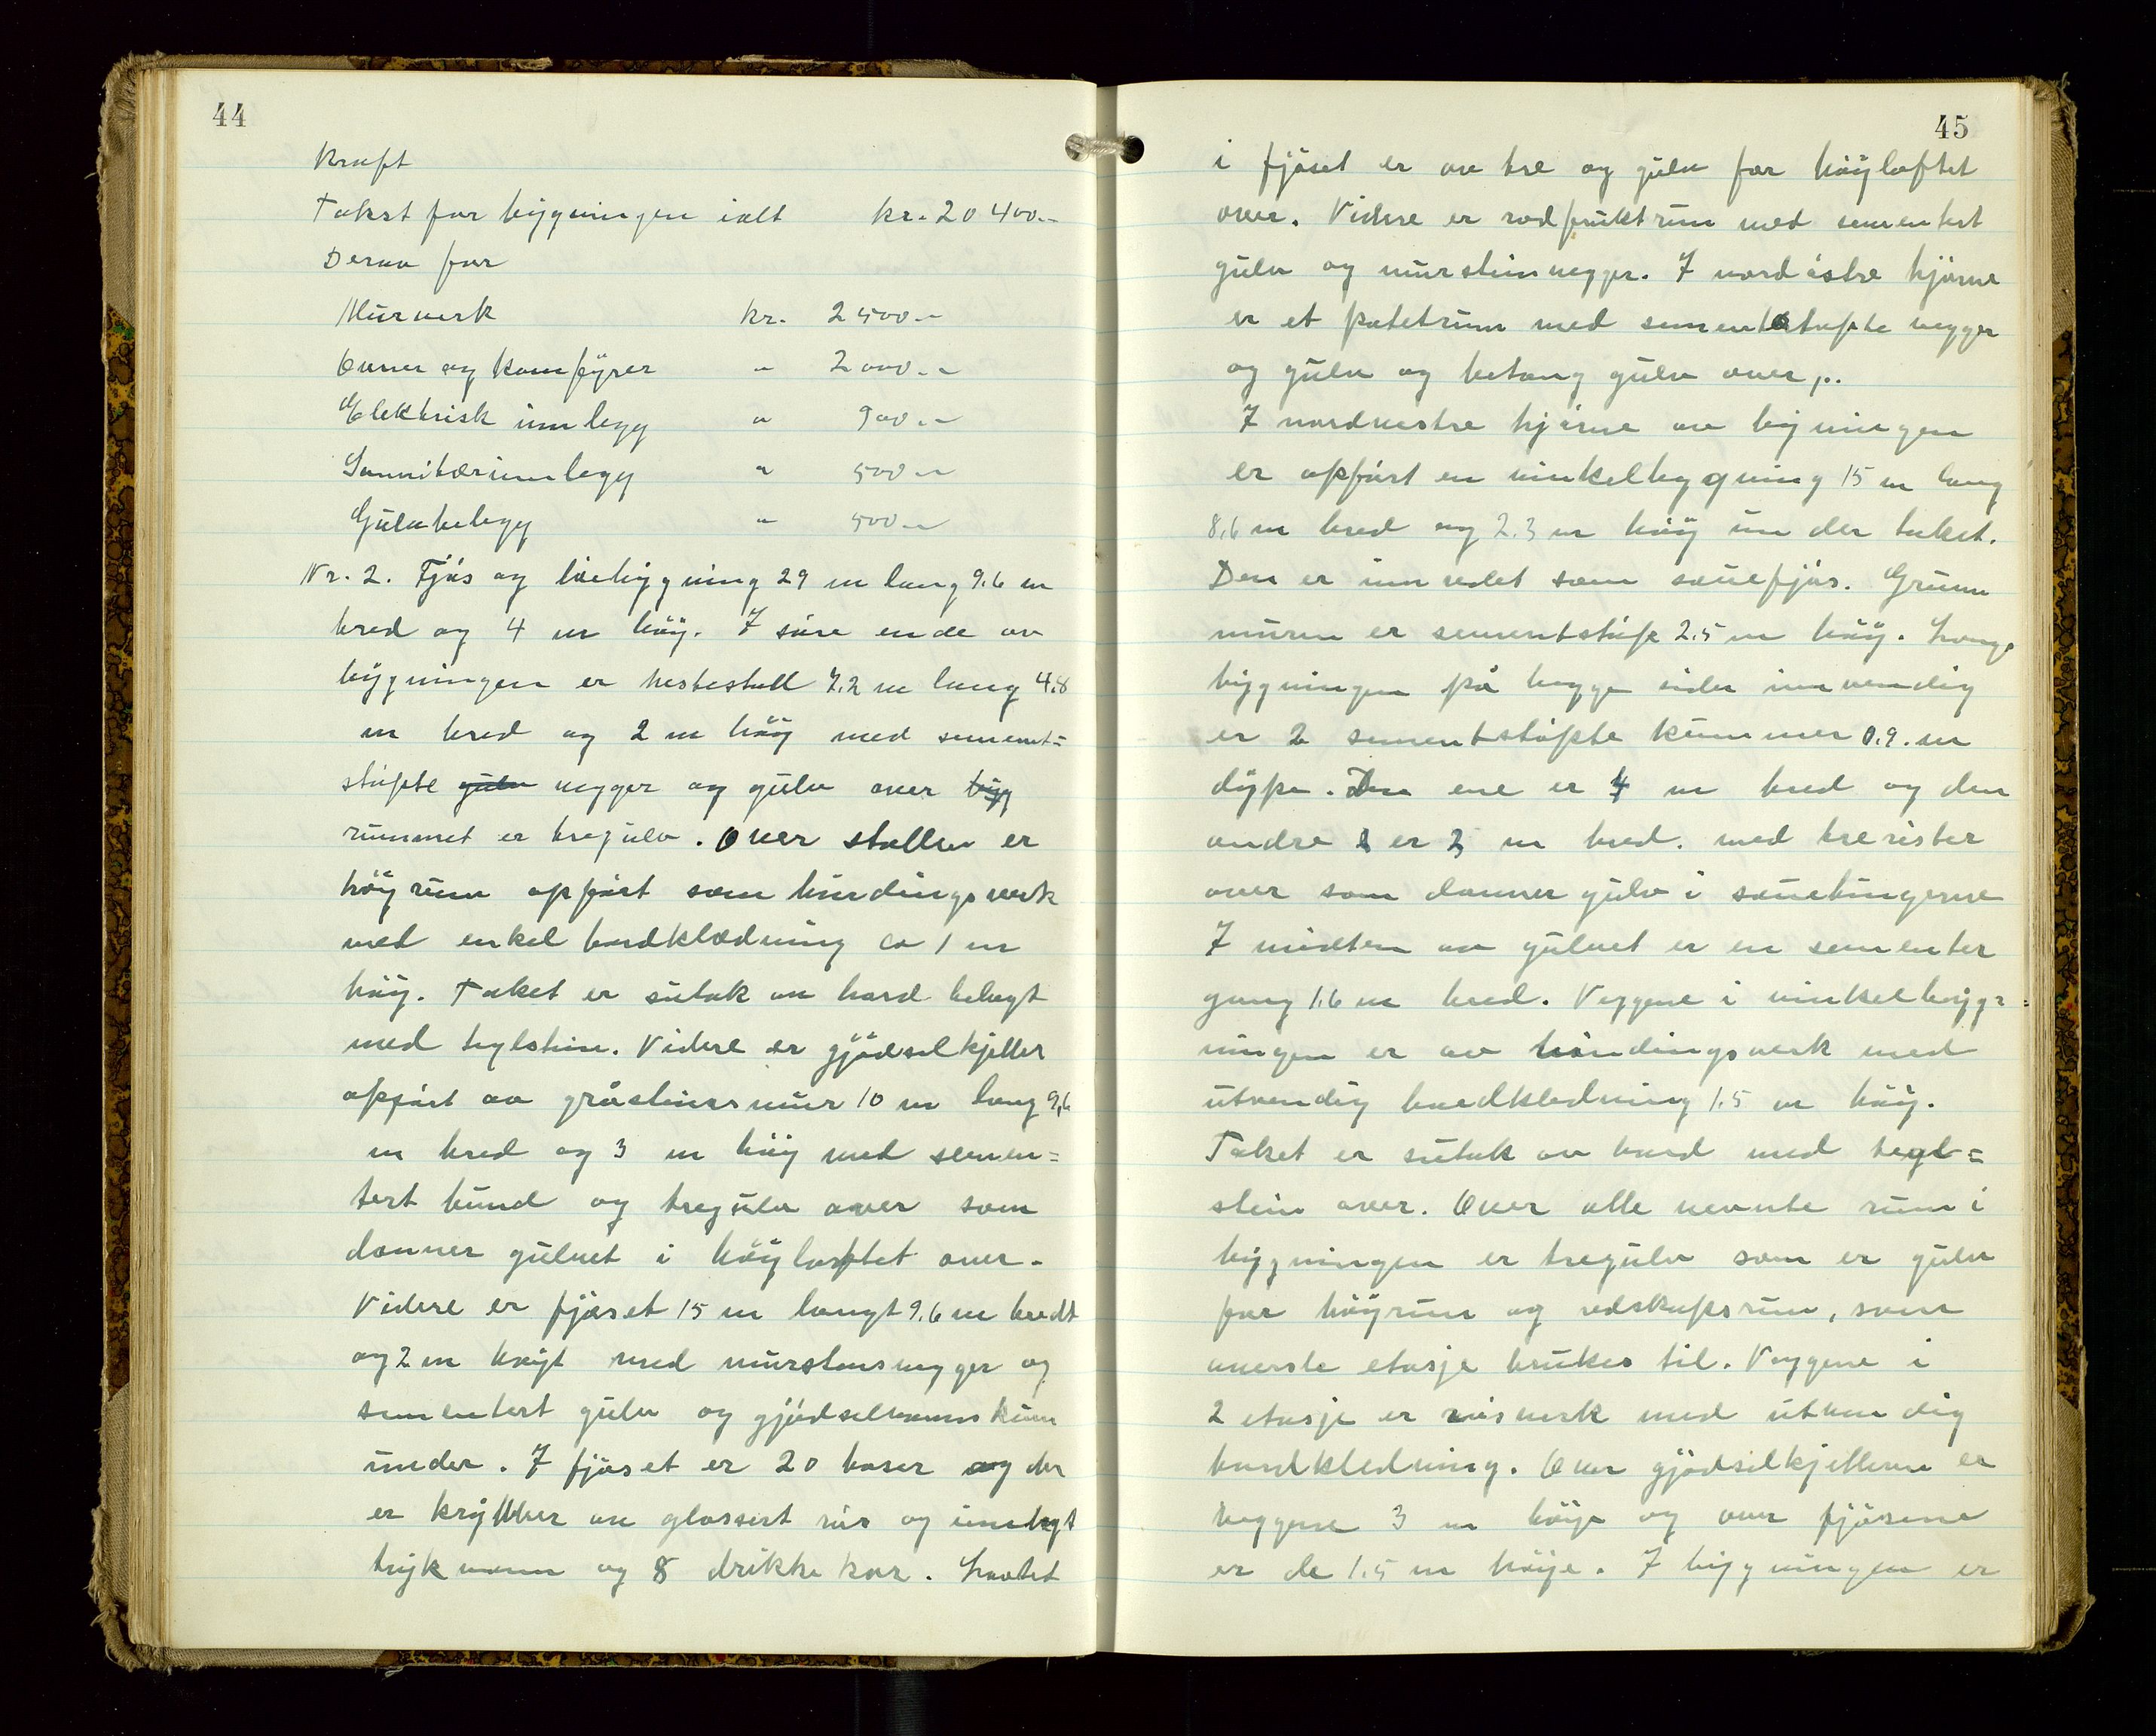 44
kraft
Takst for bygningen ialt kr. 20 400.-
Derav for
Murverk kr. 2500.-
Ovner og komfyrer " 2000.-
Elektrisk innlegg " 900.-
Sannitærinnlegg " 500.-
Gulvbelegg " 500.-
Nr. 2. Fjös og löebygning 29 m lang 9.6 m
bred og 4 m höy. I söre ende av
bygningen er hestestall 7.2 m lang 4.8
m bred og 2 m höy med sement=
stöpte gulv vegger og gulv over byg
rummet er tregulv. Over stallen er
höyrum opfört som bindingsverk
med enkel bordklædning ca 1 m
höy. Taket er sutak av bord belagt
med teglstein. Videre er gjödselkjeller
opfört av gråsteinsmur 10 m lang 9,6
m bred og 3 m höy med semen=
tert bund og tregulv over som
danner gulvet i höyloftet over.
Videre er fjöset 15 m langt 9.6 m bredt
og 2 m höyt med murstensvegger og
sementert gulv og gjödselvannskum
under. I fjöset er 20 baser og der
er krybber av glassert rör og innlagt
trykvann og 8 drikkekar. Loftet
45
i fjöset er av tre og gulv for höyloftet
over. Videre er rodfruktrum med sementert
gulv og murstein vegger. I nordöstre hjörne
er et potetrum med sementstöpte vegger
og gulv og betong gulv over,..
I nordvestre hjörne av bygningen
er opfört en vinkelbygning 15 m lang
8.6 m bred og 2.3 m höy under taket.
Den er innredet som sauefjös. Grunn
muren er sementstöpt 2.5 m höy. Langs
bygningen på begge sider innvendig
er 2 sementstöpte kummer 0.9. m
dype. Den ene er 4 m bred og den
andre er 2 m bred. med trerister
over som danner gulv i sauebingerne
I midten av gulvet er en sementer
gang 1.6 m bred. Veggene i vinkelbygg=
ningen er av bindingsverk med
utvendig bordkledning 1.5 m höy.
Taket er sutak av bord med tegl=
stein over. Over alle nevnte rum i
bygningen er tregulv som er gulv
for höyrum og redskapsrum, som
överste etasje brukes til. Veggene i
2 etasje er reisverk med utvendig
bordkledning. Over gjödselkjelleren er
veggene 3 m höye og over fjösene
er de 1.5 m höye. I bygningen er